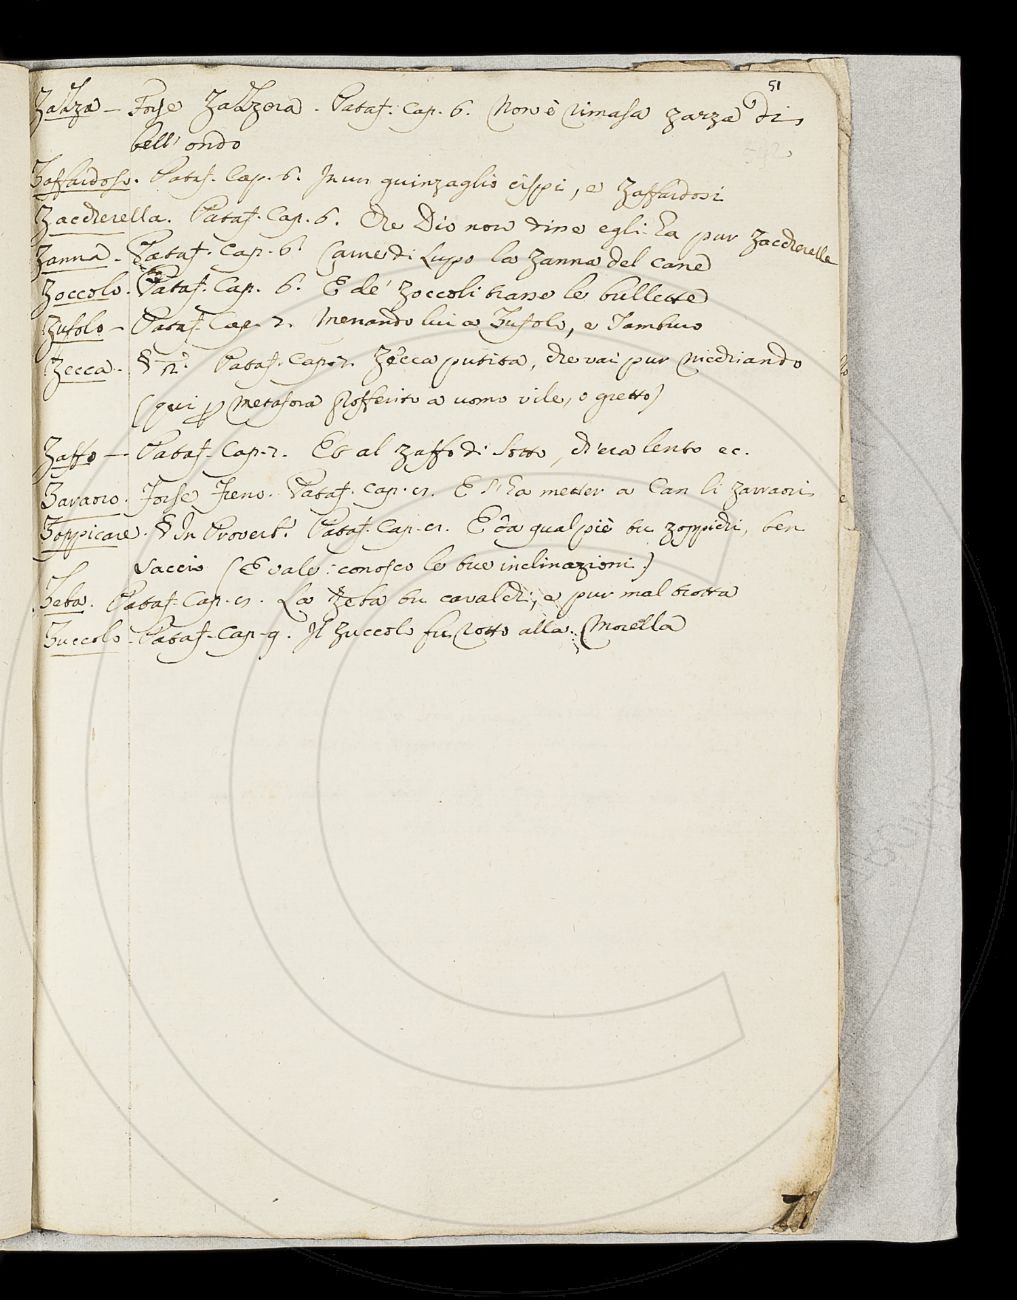 51
Zazza - Forse Zazzera. Pataf. Cap. 6. Non è rimasa zarza di
bell' ondo
Zaffardoso. Pataf. Cap. 6. In un guinzaglio cispi, e Zaffardosi
Zaccherella. Pataf. Cap. 6. Che Dio non dine egli ha pur Zaccherelle
Zanna - Pataf. Cap. 6. Carne di Lupo la Zanna del cane
Zoccolo. Pataf. Cap. 6. E de' Zoccoli trasse le bullette
Zufolo - Pataf. Cap. 7. Menando lui a Zufolo, e Tamburo
Zecca - § Pataf. Cap. 7. Zecca putita, che vai pur nicchiando
(qui metafora profferito a uomo vile, o gretto)
Zaffo - Pataf. Cap. 7. Et al zaffo di sotto, ch'era lento ec.
Zavaoro. Forse Freno. Pataf. Cap. E l'ha metter a Can li zavraori
Zoppicare. § In Proverb. Pataf. Cap. E da qual piè tu zoppichi, ben
saccio (E vale: conosco le tue inclinazioni)
Zeba. Pataf. Cap. La Zeba tu cavalchi, e pur mal trotta
Zuccolo - Pataf. Cap. 9. Il Zuccolo fu rotto alla Morella
71